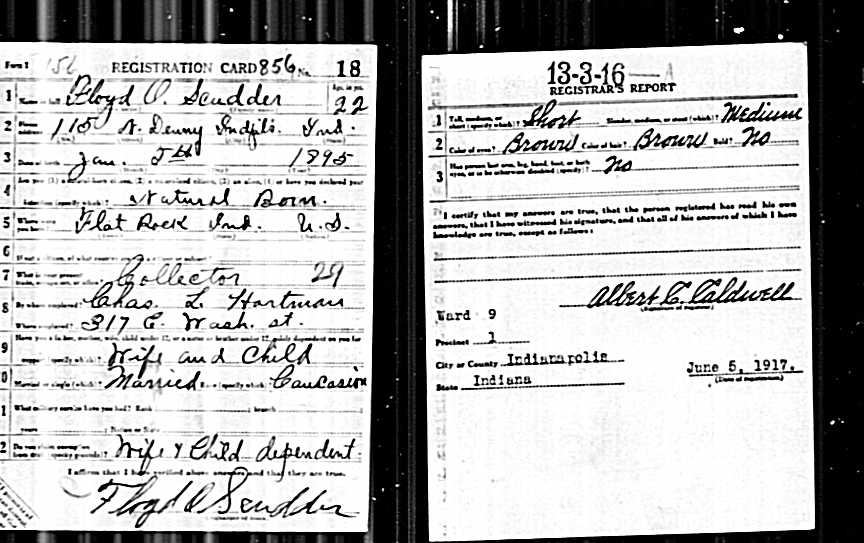 Form 1 156 REGISTRATION CARD 856 No. 18
1 Name in full Floyd O. Scudder Age, in yrs. 22
2 Home address 115 N. Denny Indpls. Ind.
3 Date of birth Jan. 5th 1895
4 Are you (1) a natural-born citizen, (2) a naturalized citizen, (3) an alien, (4) or have you declared your
intention (specify which)? Natural Born.
5 Where were you born? Flat Rock Ind. U.S.
6 If not a citizen, of what country are you a citizen or subject?
7 What is your present trade, occupation, or office? Collector 29
8 By whom employed? Chas. L. Hartman
Where employed? 317 E. Wash. st.
9 Have you a father, mother, wife, child under 12, or a sister or brother under 12, solely dependent on you for
support (specify which)? Wife and Child
0 Married or single (which)? Married Race (specify which)? Caucasion
1 What military service have you had? Rank branch
years Nation or State
2 Do you claim exemption from draft (specify grounds)? Wife & Child dependent.
I affirm that I have verified above answers and that they are true.
Floyd O Scudder
13-3-16 A
REGISTRAR'S REPORT
1 Tall, medium, or short (specify which)? Short Slender, medium, or stout (which)? Medium
2 Color of eyes? Brown Color of hair? Brown Bald? No
3 Has person lost arm, leg, hand, foot, or both eyes, or is he otherwise disabled (specify)? No
I certify that my answers are true, that the person registered has read his own
answers, that I have witnessed his signature, and that all of his answers of which I have
knowledge are true, except as follows:
Albert C. Caldwell
(Signature of registrar)
Ward 9
Precinct 1
City or County Indianapolis
State Indiana
June 5, 1917.
(Date of registration)